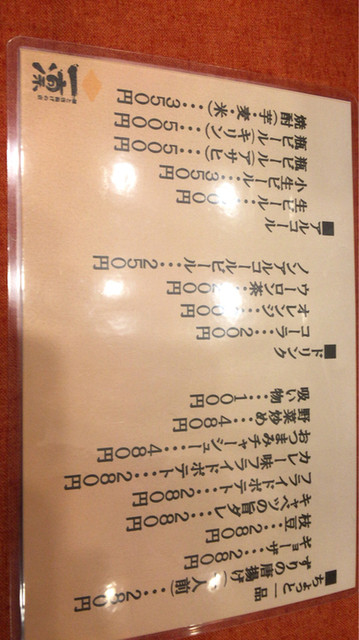 ■ちょっと一品
ずりの唐揚げ(人前)・・・280円
ギョーザ・・・280円
枝豆・・・280円
キャベツの旨ダレ・・・280円
フライドポテト・・・280円
カレー味フライドポテト・・・280円
おつまみチャーシュー・・・480円
野菜炒め・・・480円
吸い物・・・100円
■ドリンク
コーラ・・・200円
オレンジ・・・円
ウーロン茶・・・200円
ノンアルコールビール・・・250円
■アルコール
生ビール・・・円
小生ビール・・・350円
瓶ビール(アサヒ)・・・500円
瓶ビール(キリン)・・・500円
焼酎(芋・麦・米)・・・350円